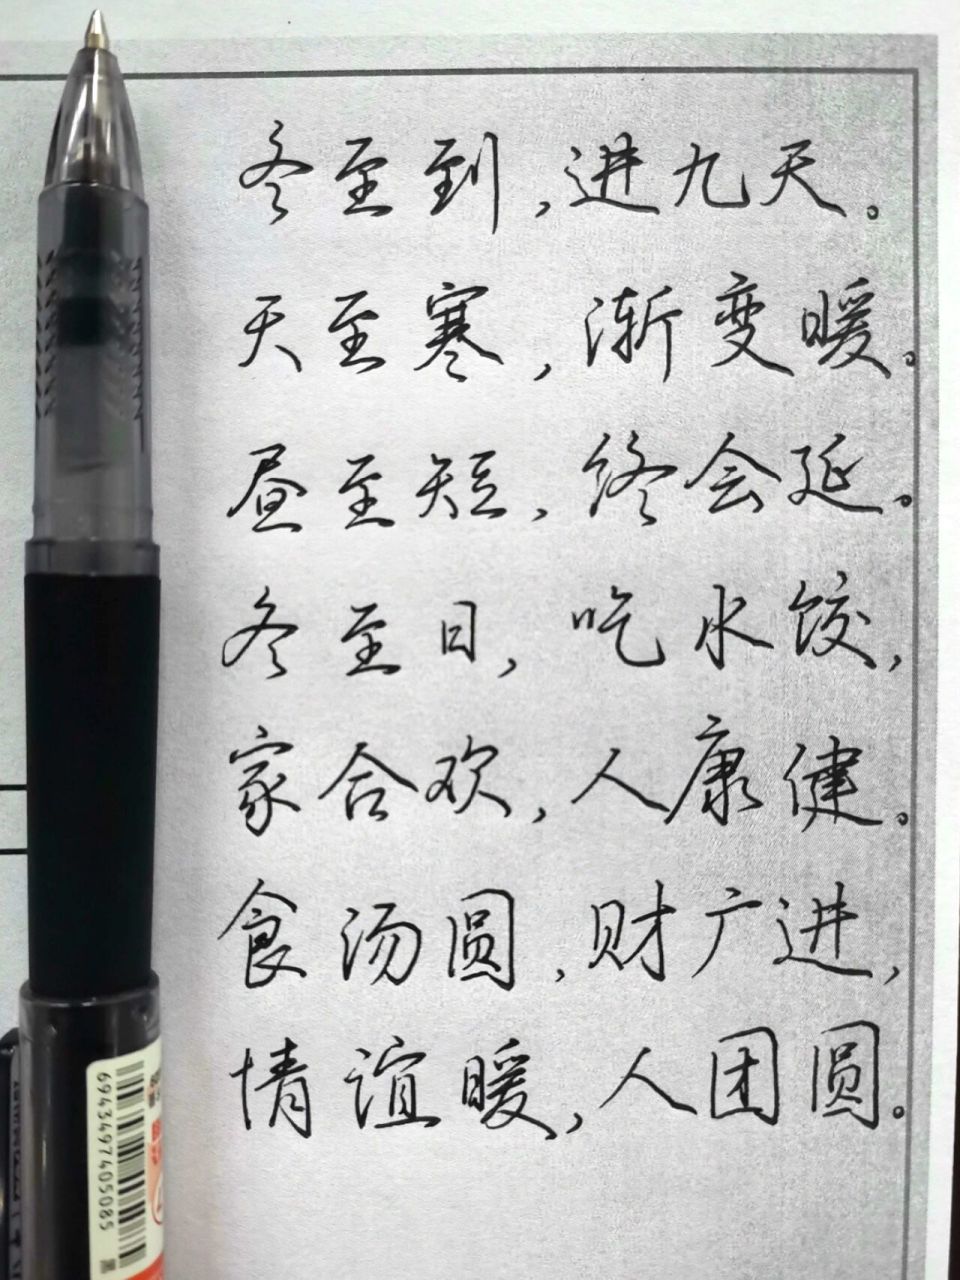 冬至到,进九天。
天至寒,渐变暖。
昼至短,终会延。
冬至日,吃水饺,
家合欢,人康健。
食汤圆,财广进,
情谊暖,人团圆。
6943497405085